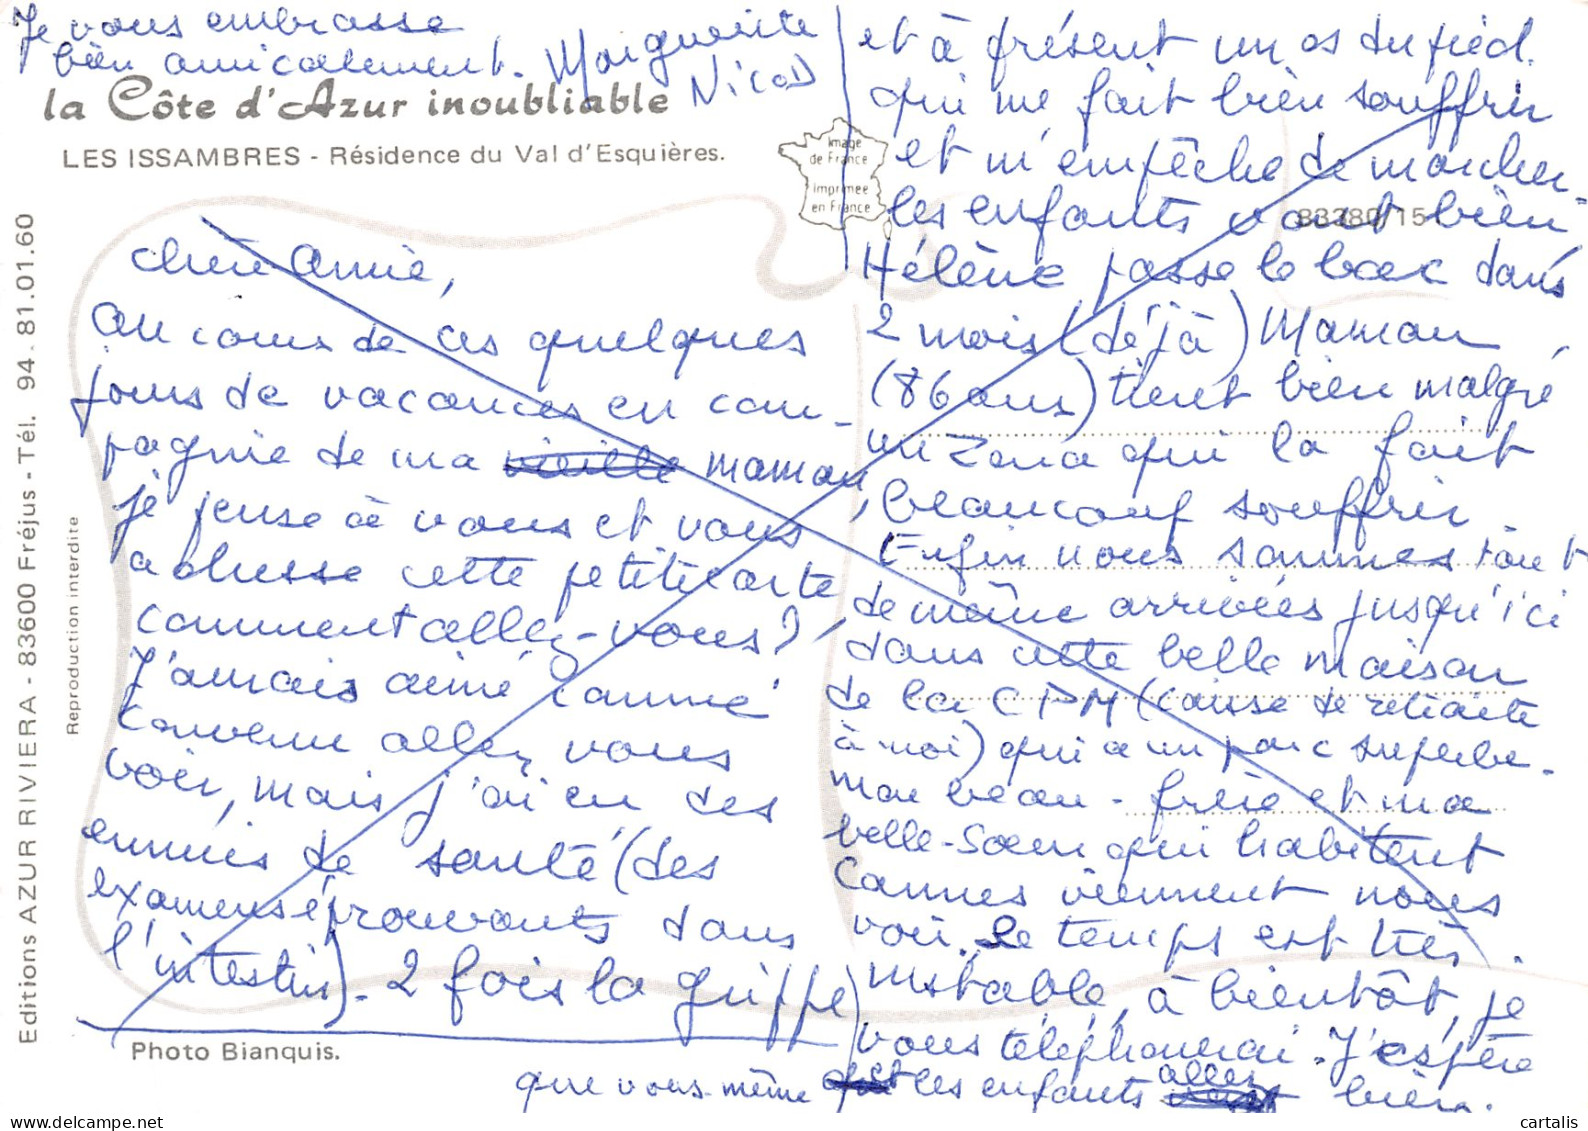 la Côte d'Azur inoubliable
LES ISSAMBRES - Résidence du Val d'Esquières.
Image
de France
imprimée
en France
83380/15
Editions AZUR RIVIERA - 83600 Fréjus - Tél. 94 - 81.01.60
Reproduction interdite
Chère Annie,
au cours de ces quelques
jours de vacances en com-
pagnie de ma vieille maman,
je pense à vous et vous
adresse cette petite carte
comment allez-vous?
J'aurais aimé comme
convenu aller vous
voir, mais j'ai eu des
ennuis de santé (des
examens éprouvants dans
l'intestin). 2 fois la grippe
et à présent un os du pied
qui me fait bien souffrir
et m'empêche de marcher.
les enfants vont bien
Hélène passe le bac dans
2 mois (déjà) Maman
(86 ans) tient bien malgré
un zona qui la fait
beaucoup souffrir.
Enfin nous sommes tout
de même arrivées jusqu'ici
dans cette belle maison
de la CPM (caisse de retraite
à moi) qui a un parc superbe.
mon beau-frère et ma
belle-soeur qui habitent
Cannes viennent nous
voir. Le temps est très
instable, à bientôt, je
vous téléphonerai. J'espère
que vous-même et les enfants allez bien.
Je vous embrasse
bien amicalement. Marguerite
Nicod
Photo Bianquis.
cartalis